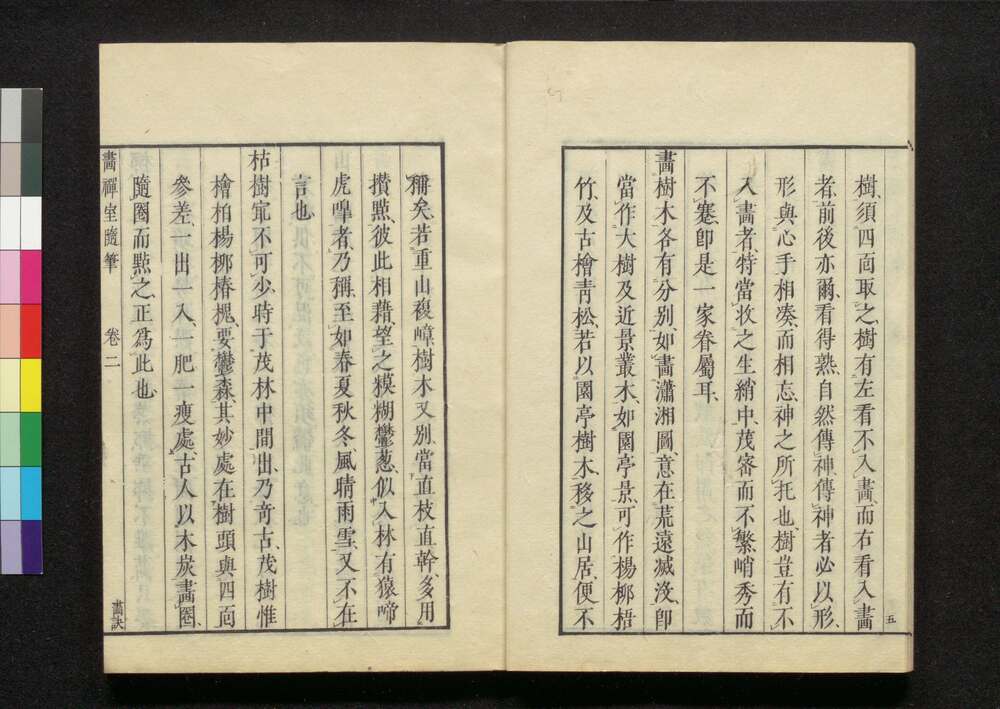 樹、須四面取之、樹有左看不入畫、而右看入畫
者、前後亦爾、看得熟、自然傳神、傳神者必以形、
形與心手相湊、而相忘、神之所托也、樹豈有不
入畫者、特當收之生綃中、茂密而不繁、峭秀而
不蹇、卽是一家眷屬耳、
畫樹木各有分別、如畫瀟湘圖、意在荒遠滅沒、卽
當作大樹及近景叢木、如園亭景、可作楊柳梧
竹、及古檜青松、若以園亭樹木、移之山居、便不
五
稱矣、若重山複嶂、樹木又別、當直枝直幹、多用
攢點、彼此相藉、望之糢糊鬱葱、似入林有猿啼
虎嘷者、乃稱、至如春夏秋冬、風晴雨雪、又不在
言也、
枯樹寂不可少、時于茂林中間出、乃奇古、茂樹惟
檜柏楊柳椿槐、要鬱森、其妙處在樹頭與四面
參差、一出一入、一肥一瘦處、古人以木炭畫圈、
隨圈而點之、正爲此也、
畫禪室隨筆 卷二 畫訣